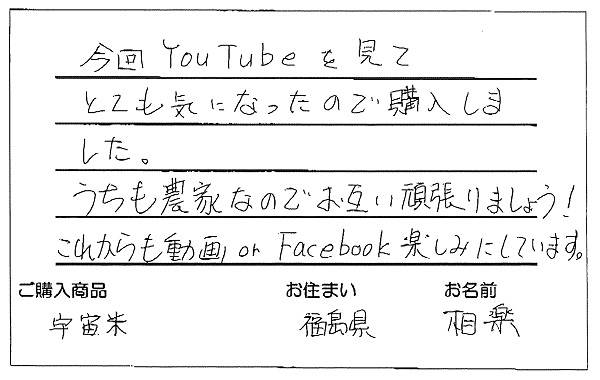 今回 YouTubeを見て
とても気になったので購入しま
した。
うちも農家なのでお互い頑張りましょう!
これからも動画 or Facebook 楽しみにしています。
ご購入商品 お住まい お名前
宇宙米 福島県 相楽